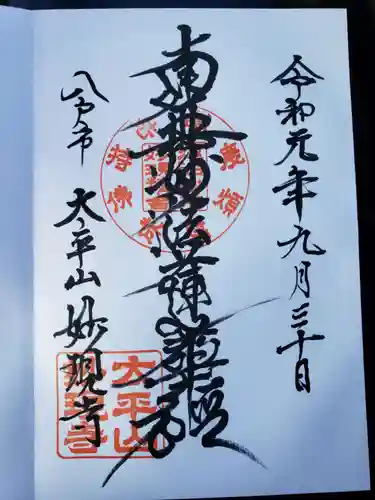 令和元年九月三十日
南無妙法蓮華経
八戸市
太平山 妙現寺
太平山
妙現寺